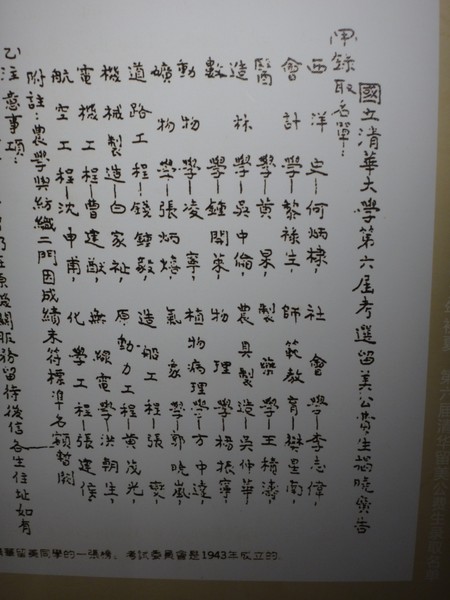 國立清華大學第六屆考選留美公費生揭曉廣告
甲錄取名單：
西洋史—何炳棣，社會學—李志偉，
會計學—黎祿生，師範教育—樊星南，
醫學—黃杲，製藥學—王積濤，
造林學—吳中倫，農具製造—吳仲華
數學—鍾開萊，物理學—楊振寧，
動物學—凌寧，植物病理學—方中達，
礦物學—張炳熺，氣象學—郭曉嵐，
道路工程—錢鍾毅，造船工程—張燮，
機械製造—白家祉，原動力工程—黃茂光，
電機工程—曹建猷，無線電學—洪朝生，
航空工程—沈申甫，化學工程—張建侯，
附註：農學與紡織二門因成績未符標準名額暫闕
乙注意事項：
原機關服務留待後信各生住址如有
華留美同學的一張榜。考試委員會是1943年成立的.
第六届清华留美公费生录取名单